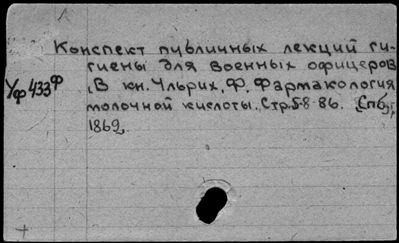 Конспект публичных лекций ги-
гиены для военных офицеров
Уф433ф
.В кн. Ульрих, Ф. Фармакология
молочной кислоты. Стр. 58-86. Спб,
1862.